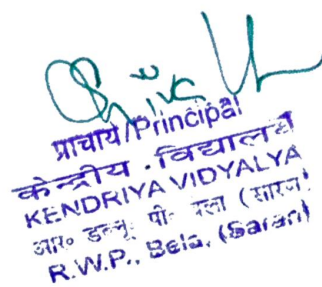 प्राचार्य/Principal
केन्द्रीय विद्यालय
KENDRIYA VIDYALYA
आर० डब्लू० पी० बेला (सारण)
R.W.P., Bela, (Saran)